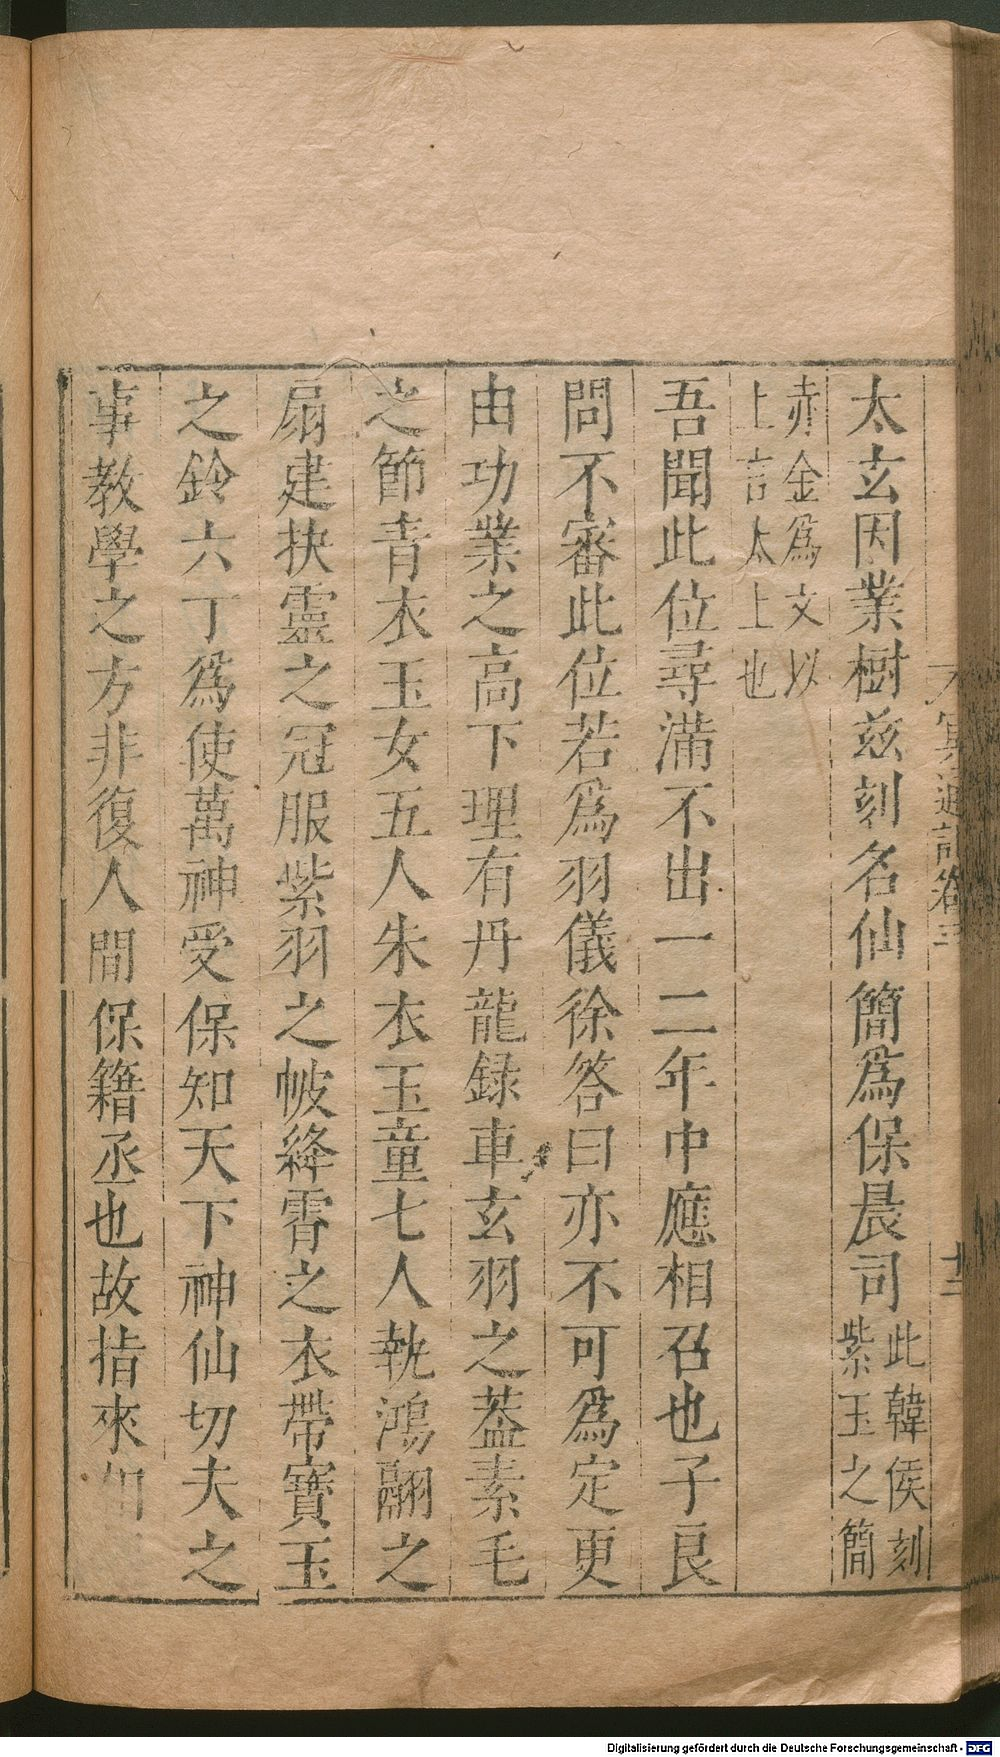 太玄因業樹茲刻名仙簡爲保晨司此韓侯刻紫玉之簡
赤金爲文以上言太上也
吾聞此位尋滿不出一二年中應相召也子良
問不審此位若爲羽儀徐答曰亦不可爲定更
由功業之高下理有丹龍録車玄羽之葢素毛
之節青衣玉女五人朱衣玉童七人執鴻翮之
扇建扶靈之冠服紫羽之帔絳霄之衣帶寶玉
之鈴六丁爲使萬神受保知天下神仙切夫之
事教學之方非復人間保籍丞也故指來
冥通記卷三
廿二
Digitalisierung gefördert durch die Deutsche Forschungsgemeinschaft - DFG